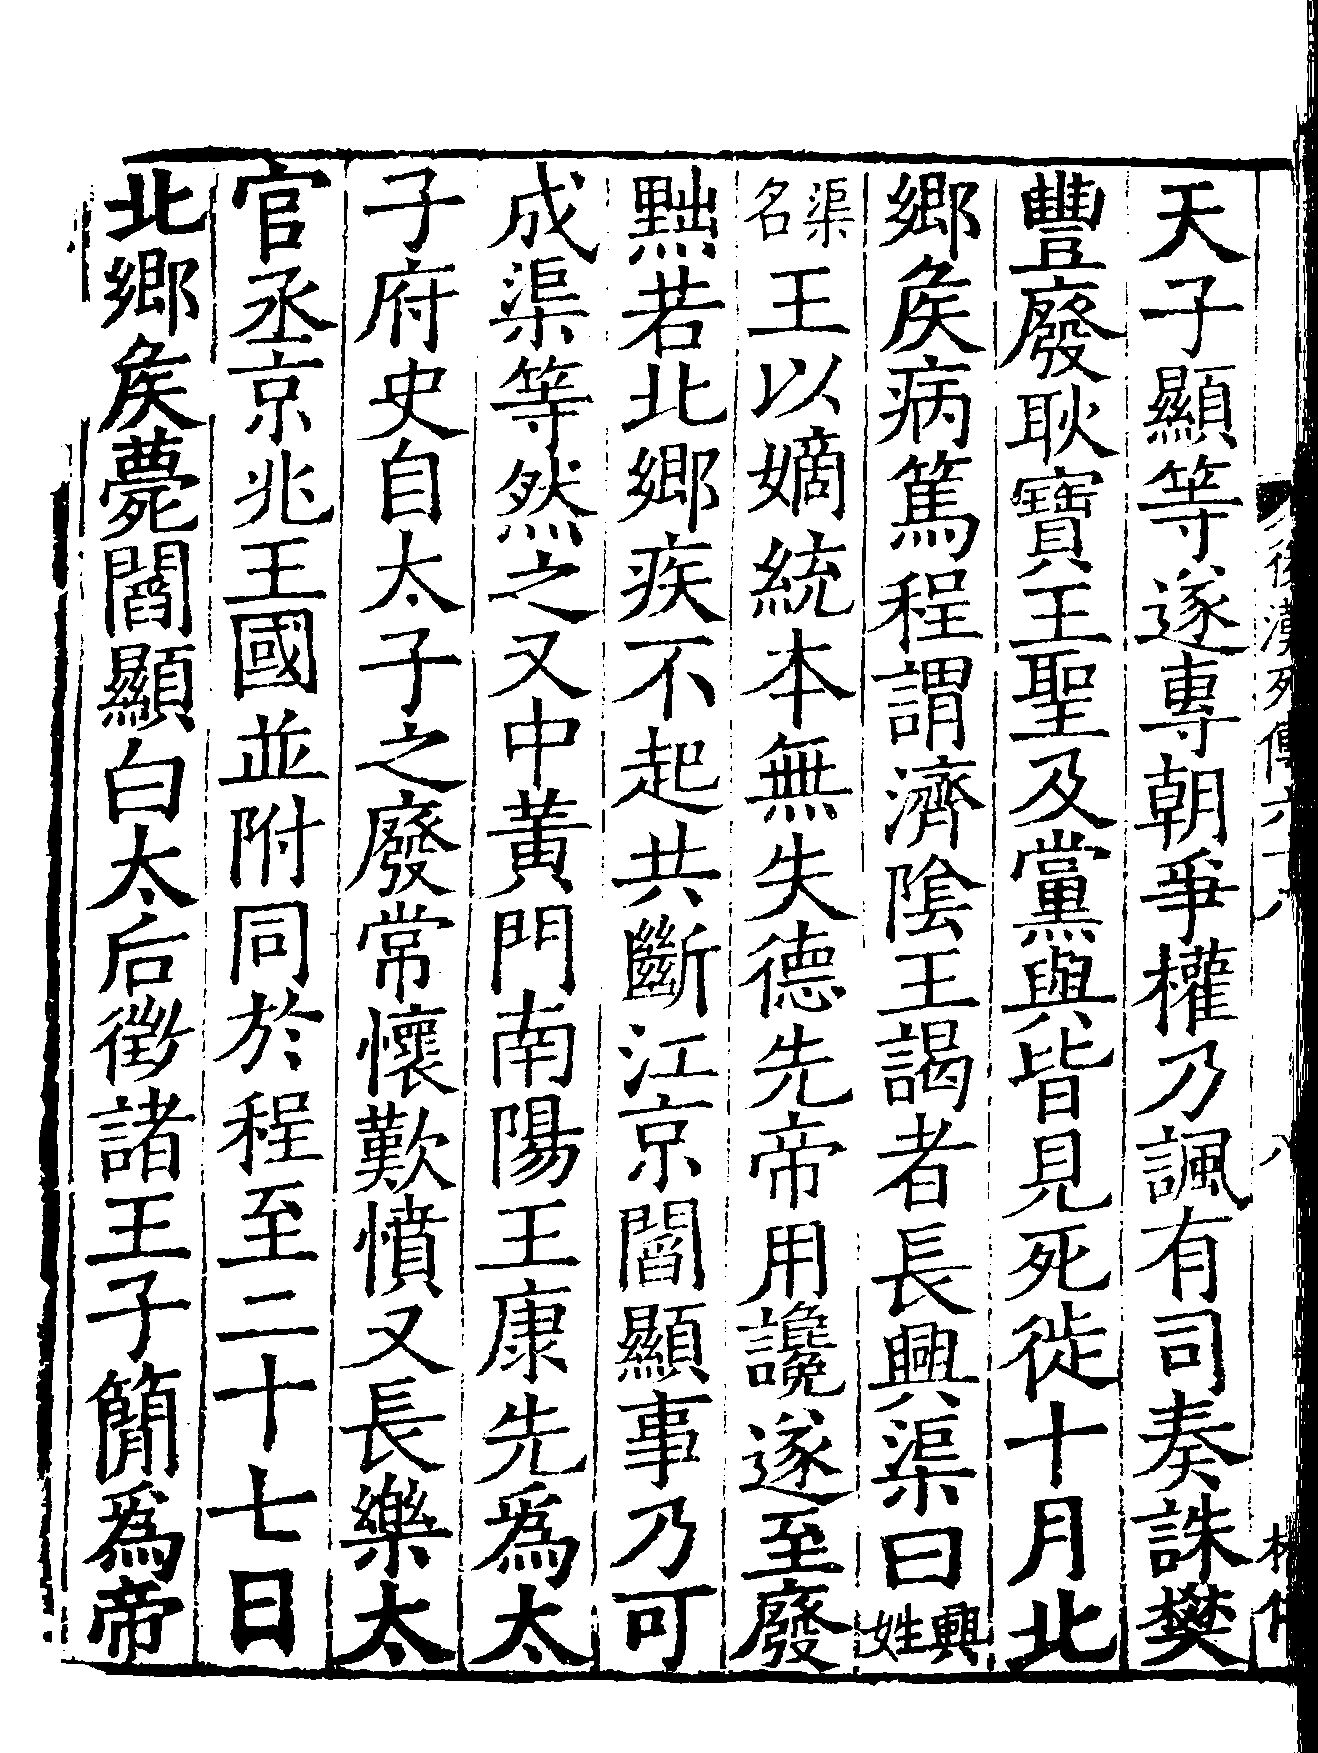 後漢列傳六十八 八
天子顯等遂專朝爭權乃諷有司奏誅樊
豐廢耿寶王聖及黨與皆見死徙十月北
鄉矦病篤程謂濟隂王謁者長興渠曰興姓
渠名王以嫡統本無失德先帝用讒遂至廢
黜若北鄉疾不起共斷江京閻顯事乃可
成渠等然之又中黃門南陽王康先爲太
子府史自太子之廢常懷歎憤又長樂太
官丞京兆王國並附同於程至二十七日
北鄉矦薨閻顯白太后徵諸王子簡爲帝